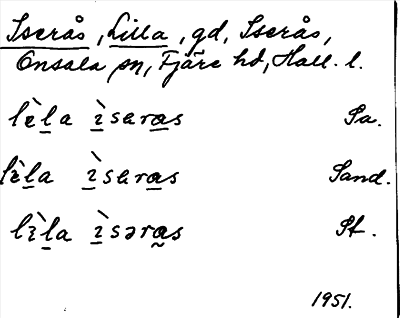 Iserås, Lilla, gd, Iserås,
Onsala sn, Fjäre hd, Hall. l.
lèla ìsəras Sa.
lèla ìsəras Sand.
lìla ìsəras Pt.
1951.